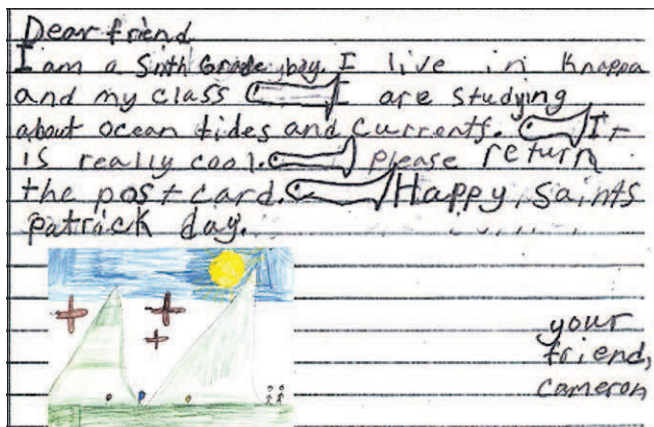 Dear friend
I am a Sixth Grade boy. I live in Knappa
and my class I are studying
about ocean tides and currents. It
is really cool. please return
the post card. Happy saints
patrick day.
your
friend,
Cameron